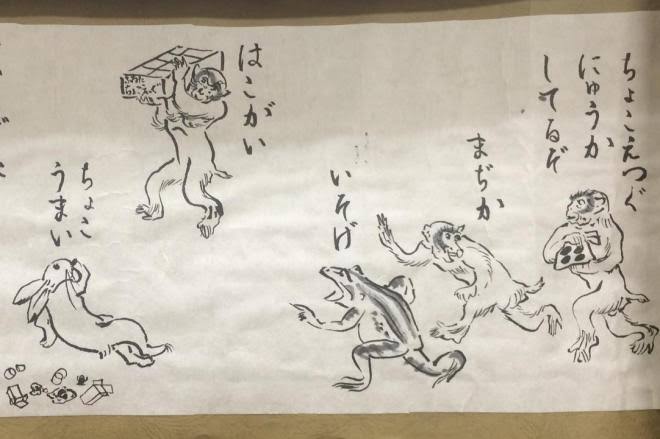 ちょこえっぐ
にゅうか
してるぞ
まぢか
いそげ
はこがい
ちょこ
うまい